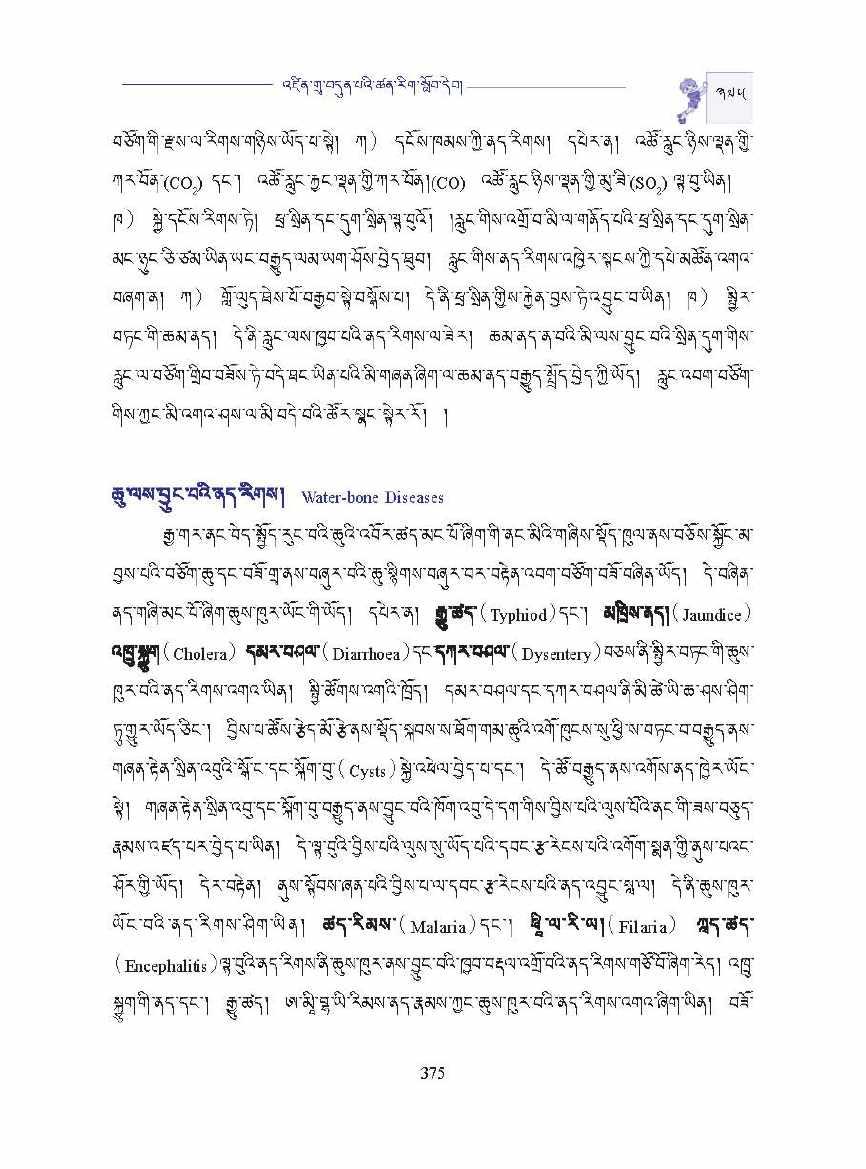 འཛིན་གྲྭ་བདུན་པའི་ཚན་རིག་སློབ་དེབ། ༣༧༥
བཙོག་གི་རྫས་ལ་རིགས་གཉིས་ཡོད་པ་སྟེ། ཀ) དངོས་ཁམས་ཀྱི་ནད་རིགས། དཔེར་ན། འཚོ་རླུང་ཉིས་ལྡན་གྱི་
ཀར་བོན་(CO₂) དང་། འཚོ་རླུང་རྐྱང་ལྡན་གྱི་ཀར་བོན།(CO) འཚོ་རླུང་ཉིས་ལྡན་གྱི་མུ་ཟི་(SO₂) ལྟ་བུ་ཡིན།
ཁ) སྐྱེ་དངོས་རིགས་ཏེ། ཕྲ་སྲིན་དང་དུག་སྲིན་ལྟ་བུའོ། །རླུང་གིས་འགྲོ་བ་མི་ལ་གནོད་པའི་ཕྲ་སྲིན་དང་དུག་སྲིན་
མང་ཉུང་ཅི་ཙམ་ཡིན་ཡང་བརྒྱུད་ལམ་ཡག་ཤོས་བྱེད་ཐུབ། རླུང་གིས་ནད་རིགས་འཁྱེར་སྟངས་ཀྱི་དཔེ་མཚོན་འགའ་
བཞག་ན། ཀ) གློ་ལུད་ཐེས་པོ་བརྒྱབ་སྟེ་བསྒོས་པ། དེ་ནི་ཕྲ་སྲིན་གྱིས་རྐྱེན་བྱས་ཏེ་འབྱུང་བ་ཡིན། ཁ) སྤྱིར་
བཏང་གི་ཆམ་ནད། དེ་ནི་རླུང་ལས་ཁྱབ་པའི་ནད་རིགས་ལ་ཟེར། ཆམ་ནད་ན་བའི་མི་ལས་བྱུང་བའི་སྲིན་དུག་གིས་
རླུང་ལ་བཙོག་གྲིབ་བཟོས་ཏེ་བདེ་ཐང་ཡིན་པའི་མི་གཞན་ཞིག་ལ་ཆམ་ནད་བརྒྱུད་སྤྲོད་བྱེད་ཀྱི་ཡོད། རླུང་འབག་བཙོག་
གིས་ཀྱང་མི་འགའ་ཤས་ལ་མི་བདེ་བའི་ཚོར་སྣང་སྟེར་རོ། །
ཆུ་ལས་བྱུང་བའི་ནད་རིགས། Water-bone Diseases
རྒྱ་གར་ནང་བེད་སྤྱོད་རུང་བའི་ཆུའི་འབོར་ཚད་མང་པོ་ཞིག་གི་ནང་མིའི་གཞིས་སྡོད་ཁུལ་ནས་བཅོས་སྐྱོང་མ་
བྱས་པའི་བཙོག་ཆུ་དང་བཟོ་གྲྭ་ནས་བཞུར་བའི་ཆུ་སྙིགས་བཞུར་བར་བརྟེན་འབག་བཙོག་བཟོ་བཞིན་ཡོད། དེ་བཞིན་
ནད་གཞི་མང་པོ་ཞིག་ཆུས་ཁུར་ཡོང་གི་ཡོད། དཔེར་ན། རྒྱུ་ཚད་(Typhiod)དང་། མཁྲིས་ནད།(Jaundice)
འཁྲུ་སྐྱུག(Cholera) དམར་བཤལ་(Diarrhoea)དང་དཀར་བཤལ་(Dysentery)བཅས་ནི་སྤྱིར་བཏང་གི་ཆུས་
ཁུར་བའི་ནད་རིགས་འགའ་ཡིན། སྤྱི་ཚོགས་འགའི་ཁྲོད། དམར་བཤལ་དང་དཀར་བཤལ་ནི་མི་ཚེ་ཡི་ཆ་ཤས་ཤིག་
ཏུ་གྱུར་ཡོད་ཅིང་། བྱིས་པ་ཚོས་རྩེད་མོ་རྩེ་ནས་སྡོད་སྐབས་ས་ཐོག་གམ་ཆུའི་འགོ་ཁུངས་སུ་ཕྱི་ས་བཏང་བ་བརྒྱུད་ནས་
གཞན་རྟེན་སྲིན་འབུའི་སྒོ་ང་དང་སྐོག་བུ་(Cysts)སྐྱེ་འཕེལ་བྱེད་པ་དང་། དེ་ཚོ་བརྒྱུད་ནས་འགོས་ནད་ཁྱེར་ཡོང་
སྟེ། གཞན་རྟེན་སྲིན་འབུ་དང་སྐོག་བུ་བརྒྱུད་ནས་བྱུང་བའི་ཁོག་འབུ་དེ་དག་གིས་བྱིས་པའི་ལུས་པོའི་ནང་གི་ཟས་བཅུད་
རྣམས་འཛད་པར་བྱེད་པ་ཡིན། དེ་ལྟ་བུའི་བྱིས་པའི་ལུས་སུ་ཡོད་པའི་དབང་རྩ་རེངས་པའི་འགོག་སྨན་གྱི་ནུས་པའང་
ཤོར་གྱི་ཡོད། དེར་བརྟེན། ནུས་སྟོབས་ཞན་པའི་བྱིས་པ་ལ་དབང་རྩ་རེངས་པའི་ནད་འབྱུང་སླ་ལ། དེ་ནི་ཆུས་ཁུར་
ཡོང་བའི་ནད་རིགས་ཤིག་ཡིན། ཚད་རིམས་(Malaria)དང་། ཕི་ལ་རི་ཡ།(Filaria) ཀླད་ཚད་
(Encephalitis)ལྟ་བུའི་ནད་རིགས་ནི་ཆུས་ཁུར་ནས་བྱུང་བའི་ཁྱབ་བརྡལ་འགྲོ་བའི་ནད་རིགས་གཙོ་བོ་ཞིག་རེད། འཁྲུ་
སྐྱུག་གི་ནད་དང་། རྒྱུ་ཚད། ཨ་མཱི་བྷ་ཡི་རིམས་ནད་རྣམས་ཀྱང་ཆུས་ཁུར་བའི་ནད་རིགས་འགའ་ཞིག་ཡིན། བཟོ་
375